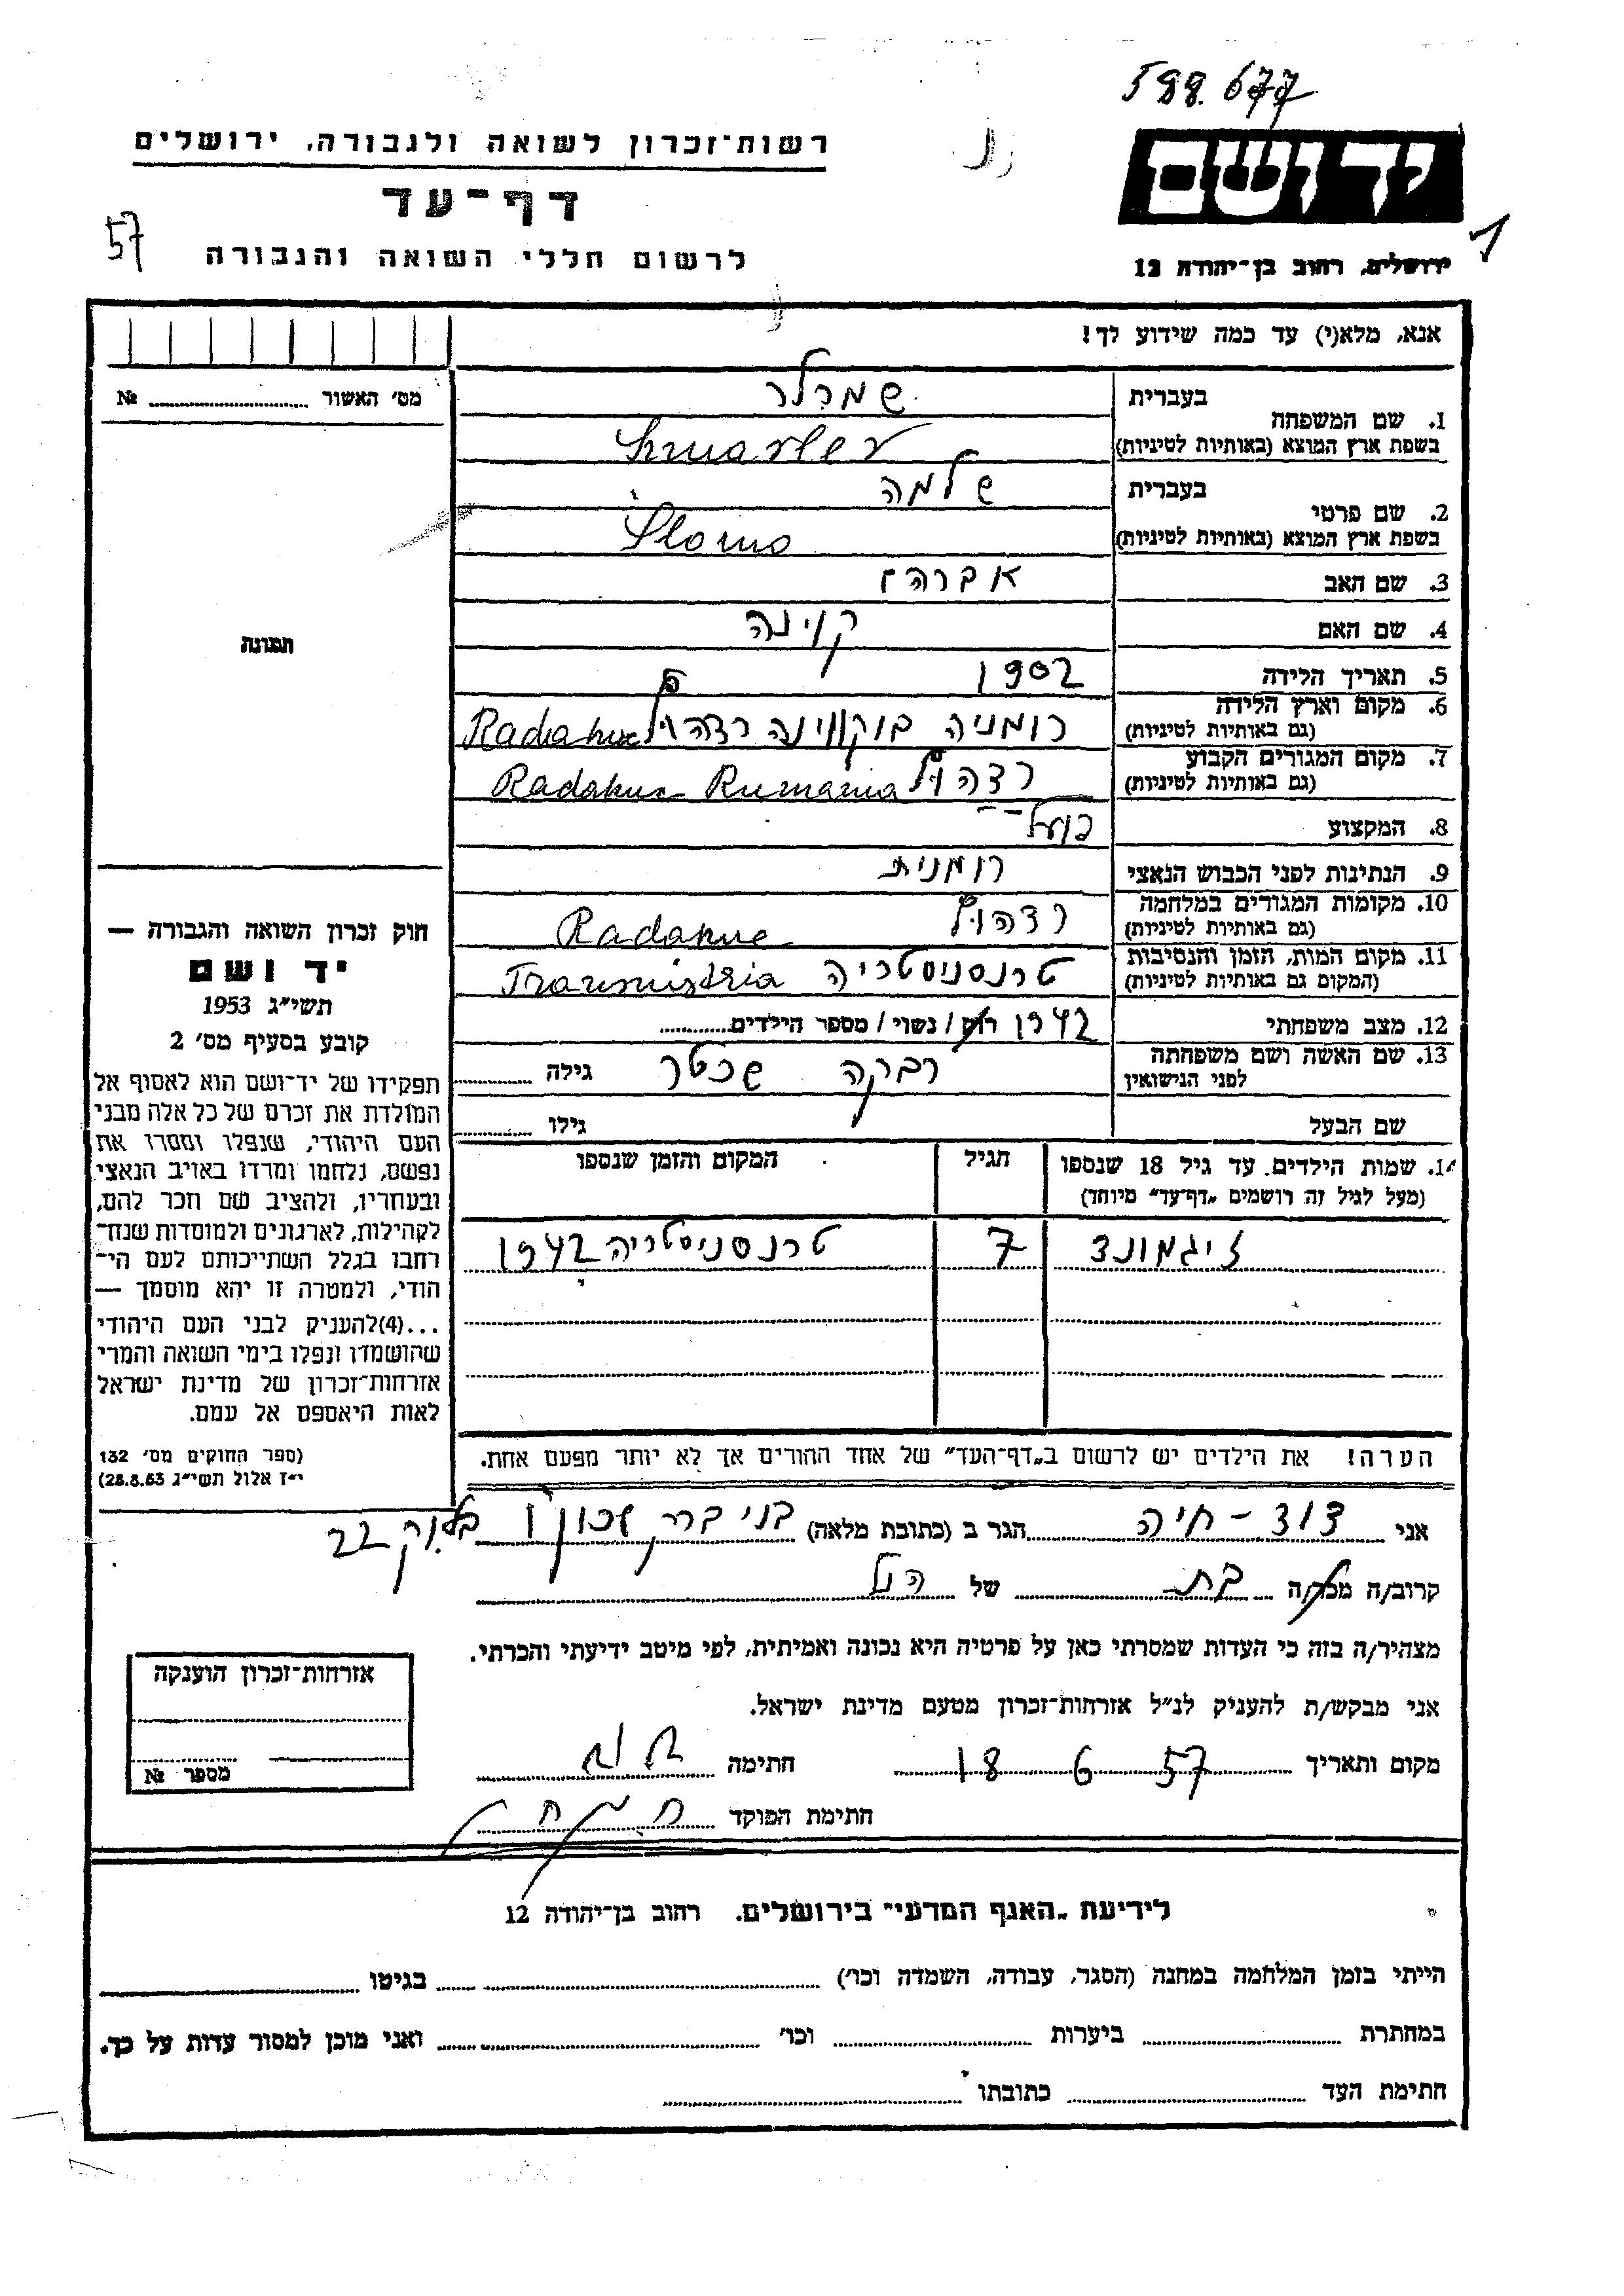 588.677
רשות־זכרון לשואה ולגבורה, ירושלים
יד ושם
דף־עד
57
1
לרשום חללי השואה והגבורה
ירושלים, רחוב בן־יהודה 12
אנא, מלא(י) עד כמה שידוע לך!
מס׳ האשור № 
1. שם המשפחה בעברית שמרלר
בשפת ארץ המוצא (באותיות לטיניות)
2. שם פרטי בעברית שלמה
בשפת ארץ המוצא (באותיות לטיניות) Šlomo
3. שם האב אברהם
4. שם האם
תמונה
5. תאריך הלידה 1902
6. מקום וארץ הלידה רומניה בוקווינה
(גם באותיות לטיניות)
7. מקום המגורים הקבוע Rumania
(גם באותיות לטיניות)
8. המקצוע פועל
9. הנתינות לפני הכבוש הנאצי רומנית
10. מקומות המגורים במלחמה
(גם באותיות לטיניות)
11. מקום המות, הזמן והנסיבות טרנסניסטריה
(המקום גם באותיות לטיניות)
12. מצב משפחתי 1942 רוק / נשוי / מספר הילדים
13. שם האשה ושם משפחתה רבקה שכטר גילה
לפני הנישואין
שם הבעל גילו
14. שמות הילדים עד גיל 18 שנספו הגיל המקום והזמן שנספו
(מעל לגיל זה רושמים „דף־עד״ מיוחד)
זיגמונד 7 טרנסניסטריה 1942
הערה! את הילדים יש לרשום ב„דף־העד״ של אחד ההורים אך לא יותר מפעם אחת.
חוק זכרון השואה והגבורה —
יד ושם
תשי״ג 1953
קובע בסעיף מס׳ 2
תפקידו של יד־ושם הוא לאסוף אל
המולדת את זכרם של כל אלה מבני
העם היהודי, שנפלו ומסרו את
נפשם, נלחמו ומרדו באויב הנאצי
ובעוזריו, ולהציב שם וזכר להם,
לקהילות, לארגונים ולמוסדות שנח־
רחבו בגלל השתייכותם לעם הי־
הודי, ולמטרה זו יהא מוסמך —
...(4)להעניק לבני העם היהודי
שהושמדו ונפלו בימי השואה והמרי
אזרחות־זכרון של מדינת ישראל
לאות היאספם אל עמם.
(ספר החוקים מס׳ 132
י״ז אלול תשי״ג 28.8.53)
אני דוד - חיה הגר ב (כתובת מלאה) בני ברק שכון ו בלוק 22
קרוב/ה מכר/ה בת של הנל
מצהיר/ה בזה כי העדות שמסרתי כאן על פרטיה היא נכונה ואמיתית, לפי מיטב ידיעתי והכרתי.
אני מבקש/ת להעניק לנ״ל אזרחות־זכרון מטעם מדינת ישראל.
מקום ותאריך 18 6 57 חתימה
חתימת הפוקד
אזרחות־זכרון הוענקה
מספר №
לידיעת „האגף המדעי״ בירושלים. רחוב בן־יהודה 12
הייתי בזמן המלחמה במחנה (הסגר, עבודה, השמדה וכו׳) בגיטו
במחתרת ביערות וכו׳ ואני מוכן למסור עדות על כך.
חתימת העד כתובתו